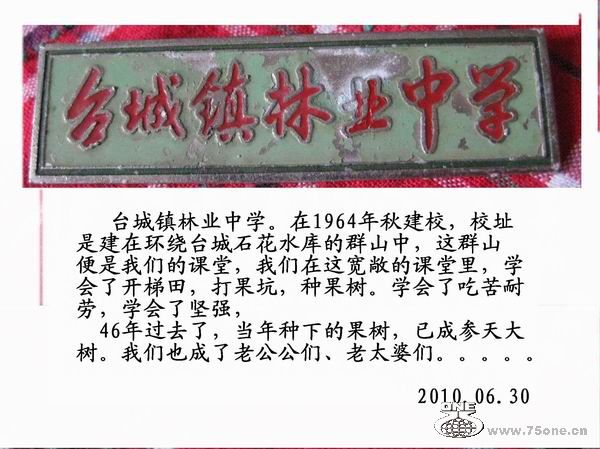 台城镇林业中学
台城镇林业中学。在1964年秋建校，校址
是建在环绕台城石花水库的群山中，这群山
便是我们的课堂，我们在这宽敞的课堂里，学
会了开梯田，打果坑，种果树。学会了吃苦耐
劳，学会了坚强，
46年过去了，当年种下的果树，已成参天大
树。我们也成了老公公们、老太婆们。。。。。
2010.06.30
ONE
www.75one.cn